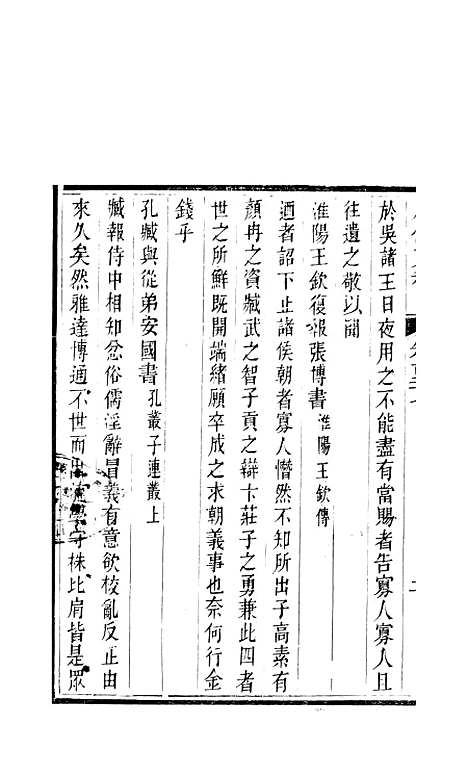 於吳諸王日夜用之不能盡有當賜者告寡人寡人且
往遺之敬以聞
淮陽王欽復報張博書 淮陽王欽傳
迺者詔下止諸侯朝者寡人憯然不知所出子高素有
顏冉之資臧武之智子貢之辯卞莊子之勇兼此四者
世之所鮮既開端緒願卒成之求朝義事也奈何行金
錢乎
孔臧與從弟安國書 孔叢子連叢上
臧報侍中相知忿俗儒淫辭冒義有意欲校亂反正由
來久矣然雅達博通不世而出流學守株比肩皆是眾